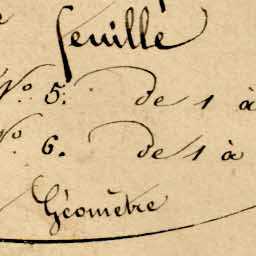 feuille
N.º 5. de 1 à
N.º 6. de 1 à
Géomètre